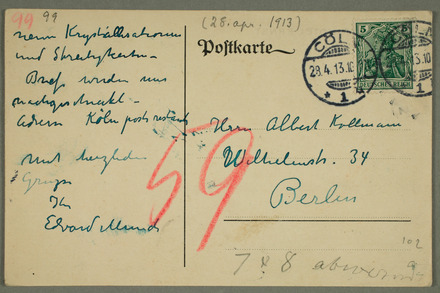 99 99
(28. apr. 1913)
Postkarte
5
DEUTSCHES REICH
CÖLN
28.4.13.10
* 1
und
Brief werden uns
nachgeschickt –
Adresse Köln poste restante
mit herzlichen
Grüssen
Ihr
Edvard Munch
Herrn Albert Kollmann
Wilhelmstr. 34
Berlin
59
102
7 x 8